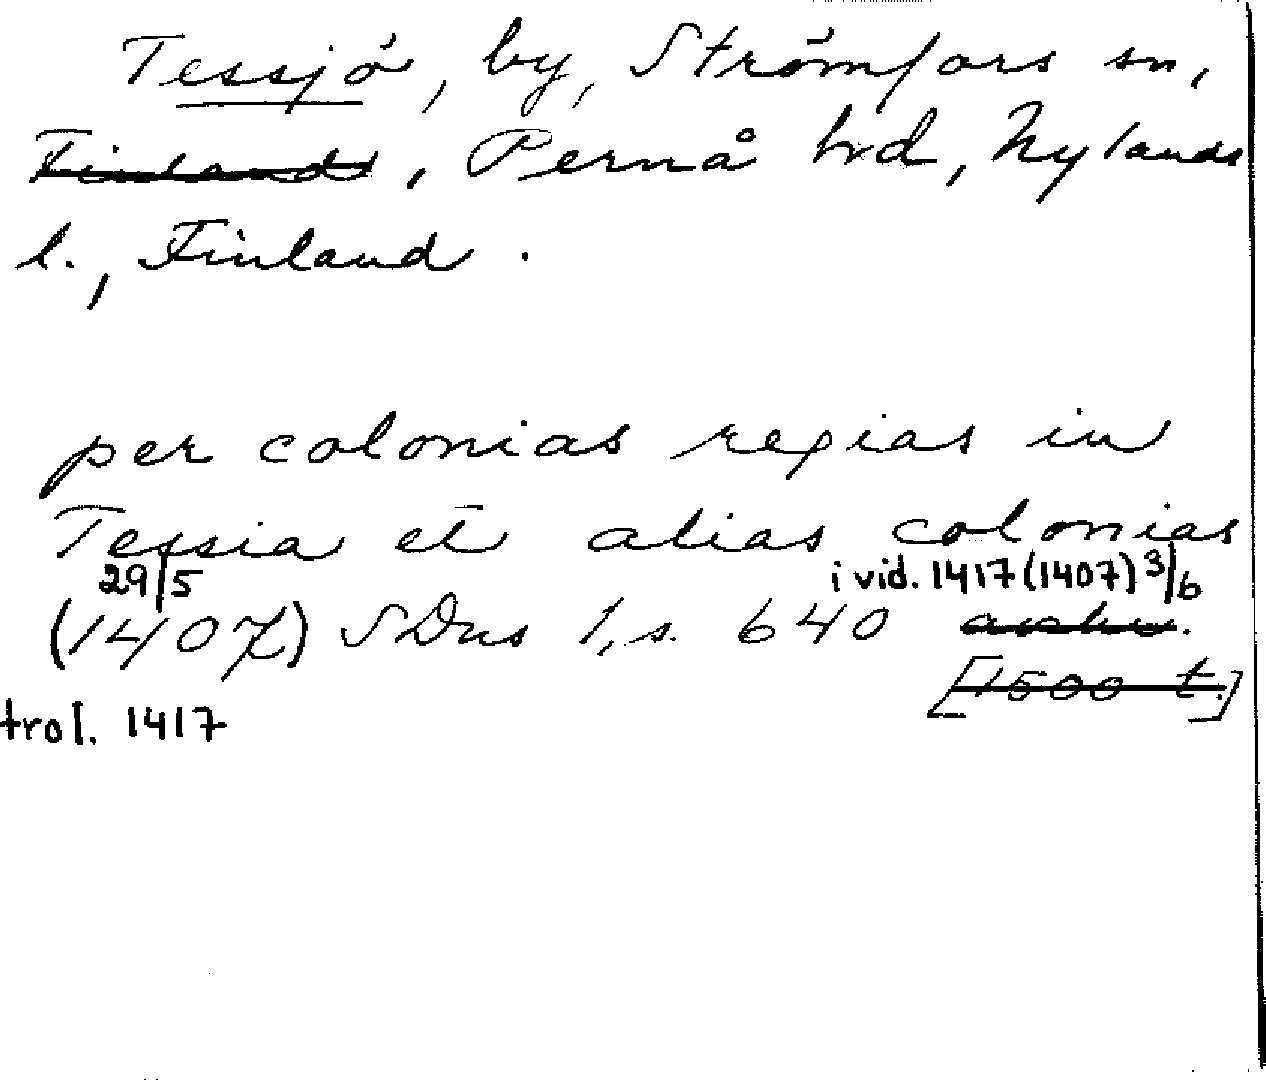 Tessjö, by, Strömfors sn,
Finland, Pernå hrd, Nylands
l., Finland.
per colonias regias in
Tessia et alias colonias
29/5 i vid. 1417 (1407) 3/6
(1407) SDns 1, s. 640
[1500 t.]
trol. 1417